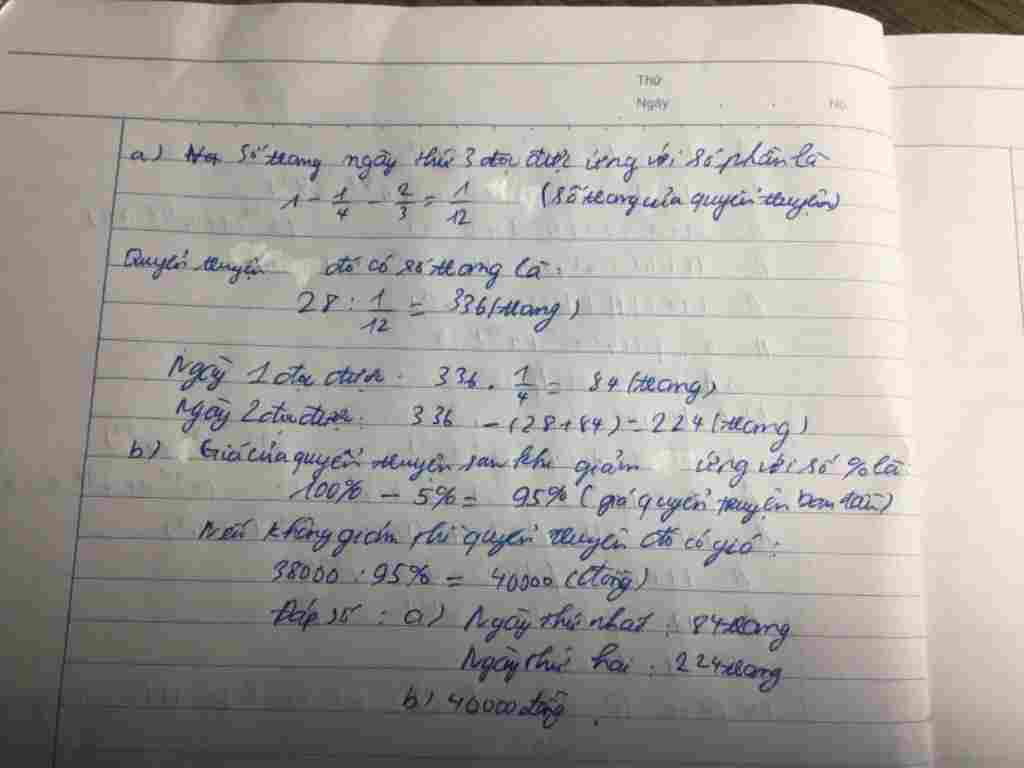 Thứ
Ngày No.
a) Số trang ngày thứ 3 đọc được ứng với số phần là
1 - 1/4 - 2/3 = 1/12 (số trang của quyển truyện)
Quyển truyện đó có số trang là:
28 : 1/12 = 336 (trang)
Ngày 1 đọc được: 336 . 1/4 = 84 (trang)
Ngày 2 đọc được: 336 - (28+84) = 224 (trang)
b) Giá của quyển truyện sau khi giảm ứng với số % là:
100% - 5% = 95% (giá quyển truyện ban đầu)
Nếu không giảm thì quyển truyện đó có giá:
38000 : 95% = 40000 (đồng)
Đáp số : a) Ngày thứ nhất : 84 trang
Ngày thứ hai : 224 trang
b) 40000 đồng.